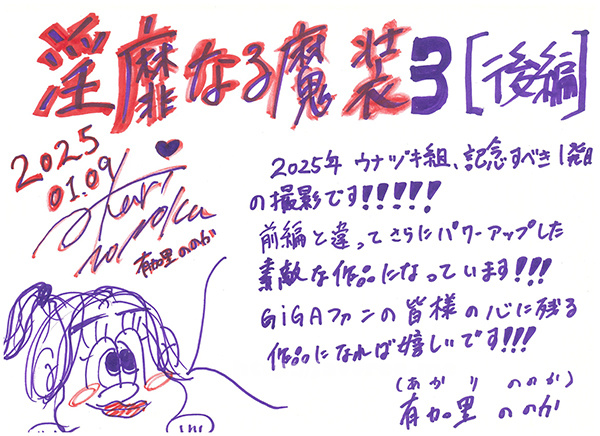 淫靡なる魔装3[後編]
2025
01.09
Akari
Nonoka
有加里ののか
2025年 ウナヅキ組、記念すべき1発目
の撮影です!!!!!
前編と違ってさらにパワーアップした
素敵な作品になっています!!!
GiGAファンの皆様の心に残る
作品になれば嬉しいです!!!
(あかり ののか)
有加里 ののか